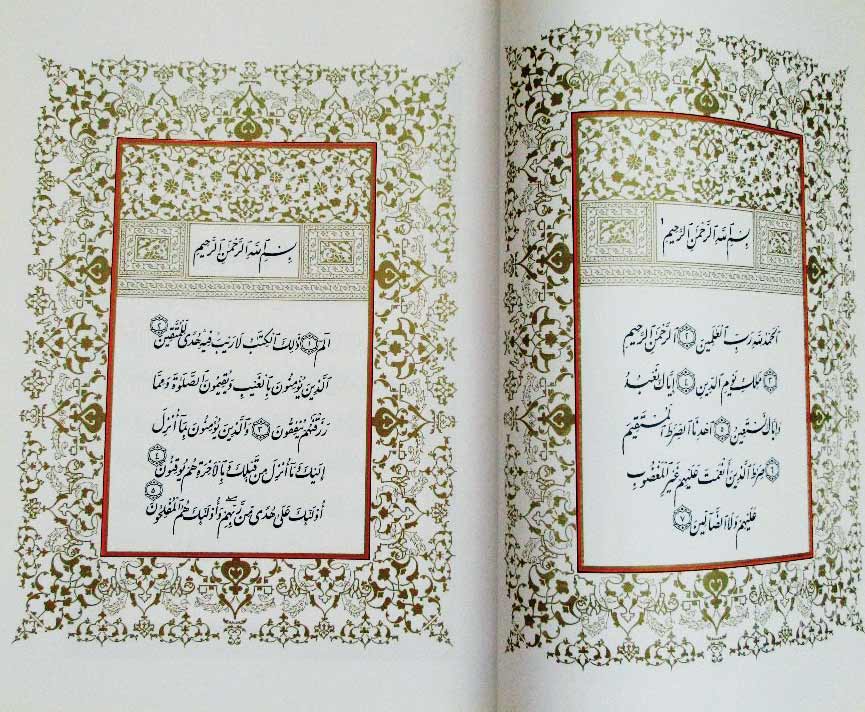 بِسْمِ ٱللَّهِ ٱلرَّحْمَٰنِ ٱلرَّحِيمِ ١
ٱلْحَمْدُ لِلَّهِ رَبِّ ٱلْعَٰلَمِينَ ٢ ٱلرَّحْمَٰنِ ٱلرَّحِيمِ
٣ مَٰلِكِ يَوْمِ ٱلدِّينِ ٤ إِيَّاكَ نَعْبُدُ
وَإِيَّاكَ نَسْتَعِينُ ٥ ٱهْدِنَا ٱلصِّرَٰطَ ٱلْمُسْتَقِيمَ
٦ صِرَٰطَ ٱلَّذِينَ أَنْعَمْتَ عَلَيْهِمْ غَيْرِ ٱلْمَغْضُوبِ
عَلَيْهِمْ وَلَا ٱلضَّآلِّينَ ٧
بِسْمِ ٱللَّهِ ٱلرَّحْمَٰنِ ٱلرَّحِيمِ
الٓمٓ ١ ذَٰلِكَ ٱلْكِتَٰبُ لَا رَيْبَ فِيهِ هُدًى لِّلْمُتَّقِينَ ٢
ٱلَّذِينَ يُؤْمِنُونَ بِٱلْغَيْبِ وَيُقِيمُونَ ٱلصَّلَوٰةَ وَمِمَّا
رَزَقْنَٰهُمْ يُنفِقُونَ ٣ وَٱلَّذِينَ يُؤْمِنُونَ بِمَآ أُنزِلَ
إِلَيْكَ وَمَآ أُنزِلَ مِن قَبْلِكَ وَبِٱلْءَاخِرَةِ هُمْ يُوقِنُونَ ٤
أُو۟لَٰٓئِكَ عَلَىٰ هُدًى مِّن رَّبِّهِمْ وَأُو۟لَٰٓئِكَ هُمُ ٱلْمُفْلِحُونَ ٥